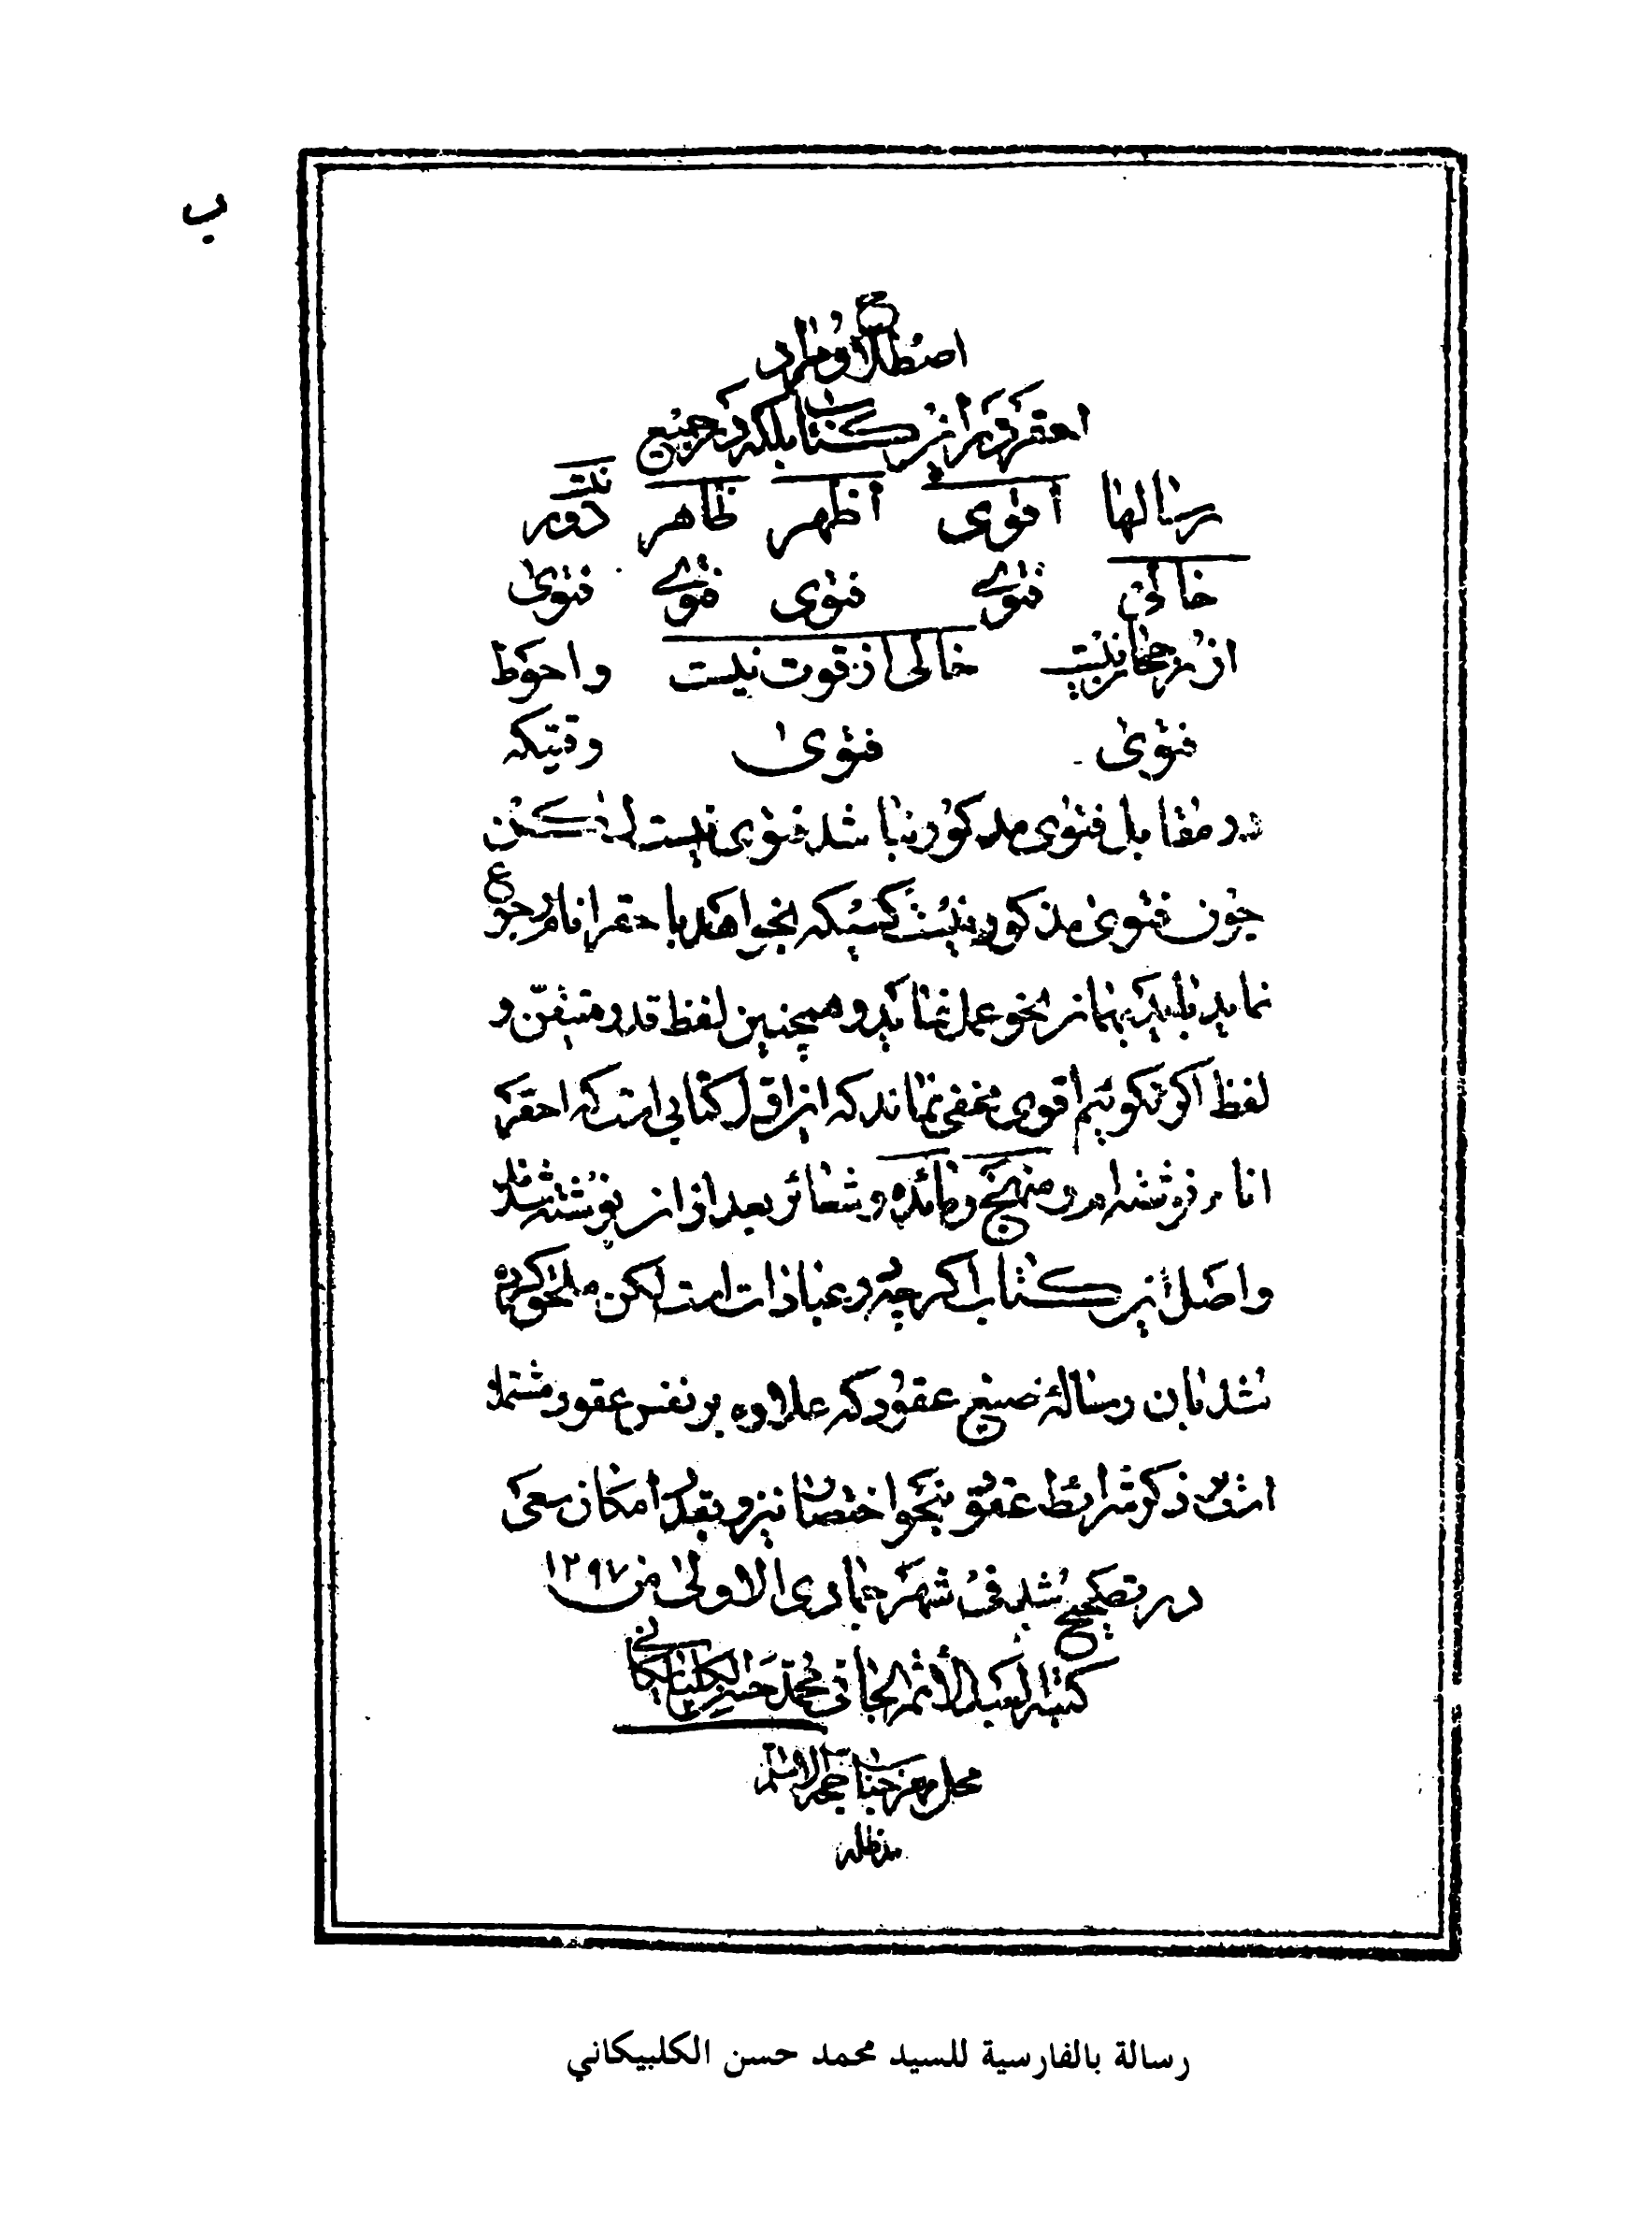 ب
اصطلاح و مراد
احقر در این کتاب بلکه در جمیع
رسالها اقوی اظهر ظاهر دور نیست
خالی فتوی فتوی فتوی فتوی
از رجحان نیست خالی از قوت نیست و احوط
فتوی فتوی وقتیکه
در مقابل فتوی مذکور نباشد فتوی نیست لکن
چون فتوی مذکور نیست کسیکه بخواهد با حقر انام رجوع
نماید باید بهمان نحو عمل نماید و همچنین لفظ قدر متیقن و
لفظ اکر نکوئیم اقوی مخفی نماند که این اول کتابی است که احقر
انام نوشته ام و منهج و مائده و شعائر بعد از آن نوشته شد
و اصل این کتاب اکرچه در عبادات است لکن ملحق کرده
شد بان رسالهٔ صیغ عقود که علاوه بر نفس عقود مشتمل
است بر ذکر شرائط عقود بنحو اختصار نیز و بقدر امکان سعی
در تصحیح شد فی شهر جمادی الاولی من ۱۲۹۷
کتبه العبد الأثم الجانی محمد حسن الکلبایکانی
محل مهر جناب حجة الاسلام
مد ظله
رسالة بالفارسية للسيد محمد حسن الكلبيكاني